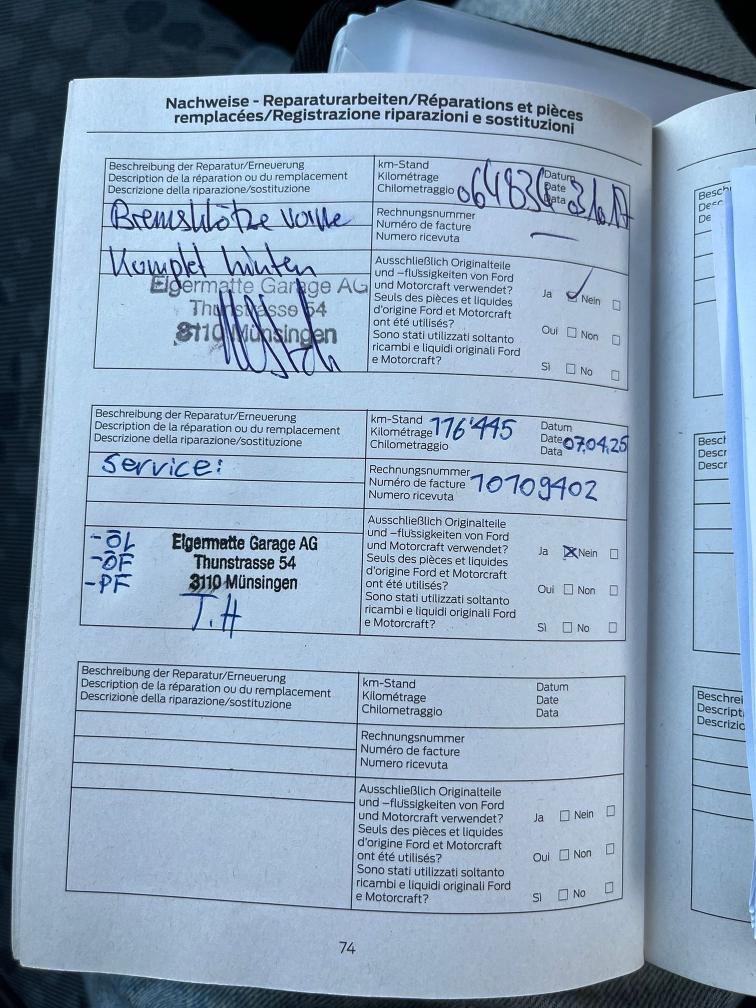 Nachweise - Reparaturarbeiten/Réparations et pièces
remplacées/Registrazione riparazioni e sostituzioni
Beschreibung der Reparatur/Erneuerung
Description de la réparation ou du remplacement
Descrizione della riparazione/sostituzione
Bremsklötze vorne
Komplet hinten
Eigermatte Garage AG
Thunstrasse 54
3110 Münsingen
km-Stand
Kilométrage
Chilometraggio
Datum
Date
Data
Rechnungsnummer
Numéro de facture
Numero ricevuta
Ausschließlich Originalteile
und –flüssigkeiten von Ford
und Motorcraft verwendet?
Ja Nein
Seuls des pièces et liquides
d'origine Ford et Motorcraft
ont été utilisés?
Oui Non
Sono stati utilizzati soltanto
ricambi e liquidi originali Ford
e Motorcraft?
Sì No
Beschreibung der Reparatur/Erneuerung
Description de la réparation ou du remplacement
Descrizione della riparazione/sostituzione
Service:
-ÖL
-ÖF
-PF
Eigermatte Garage AG
Thunstrasse 54
3110 Münsingen
T.H
km-Stand
Kilométrage 116'445
Chilometraggio
Datum
Date 07.04.25
Data
Rechnungsnummer
Numéro de facture 10109402
Numero ricevuta
Ausschließlich Originalteile
und –flüssigkeiten von Ford
und Motorcraft verwendet?
Ja Nein
Seuls des pièces et liquides
d'origine Ford et Motorcraft
ont été utilisés?
Oui Non
Sono stati utilizzati soltanto
ricambi e liquidi originali Ford
e Motorcraft?
Sì No
Beschreibung der Reparatur/Erneuerung
Description de la réparation ou du remplacement
Descrizione della riparazione/sostituzione
km-Stand
Kilométrage
Chilometraggio
Datum
Date
Data
Rechnungsnummer
Numéro de facture
Numero ricevuta
Ausschließlich Originalteile
und –flüssigkeiten von Ford
und Motorcraft verwendet?
Ja Nein
Seuls des pièces et liquides
d'origine Ford et Motorcraft
ont été utilisés?
Oui Non
Sono stati utilizzati soltanto
ricambi e liquidi originali Ford
e Motorcraft?
Sì No
74